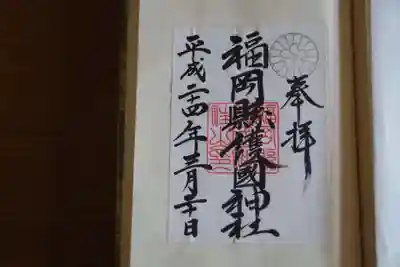 奉拝
福岡縣護國神社
平成二十四年三月二十日